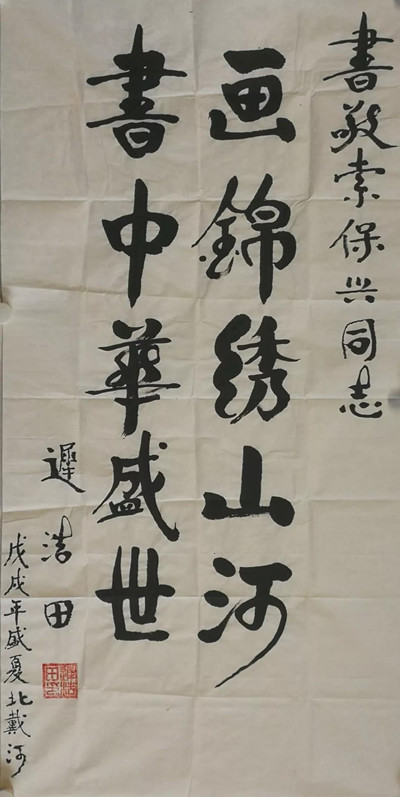 書敬索保兴同志
画錦绣山河
書中華盛世
遲浩田
戊戌年盛夏北戴河